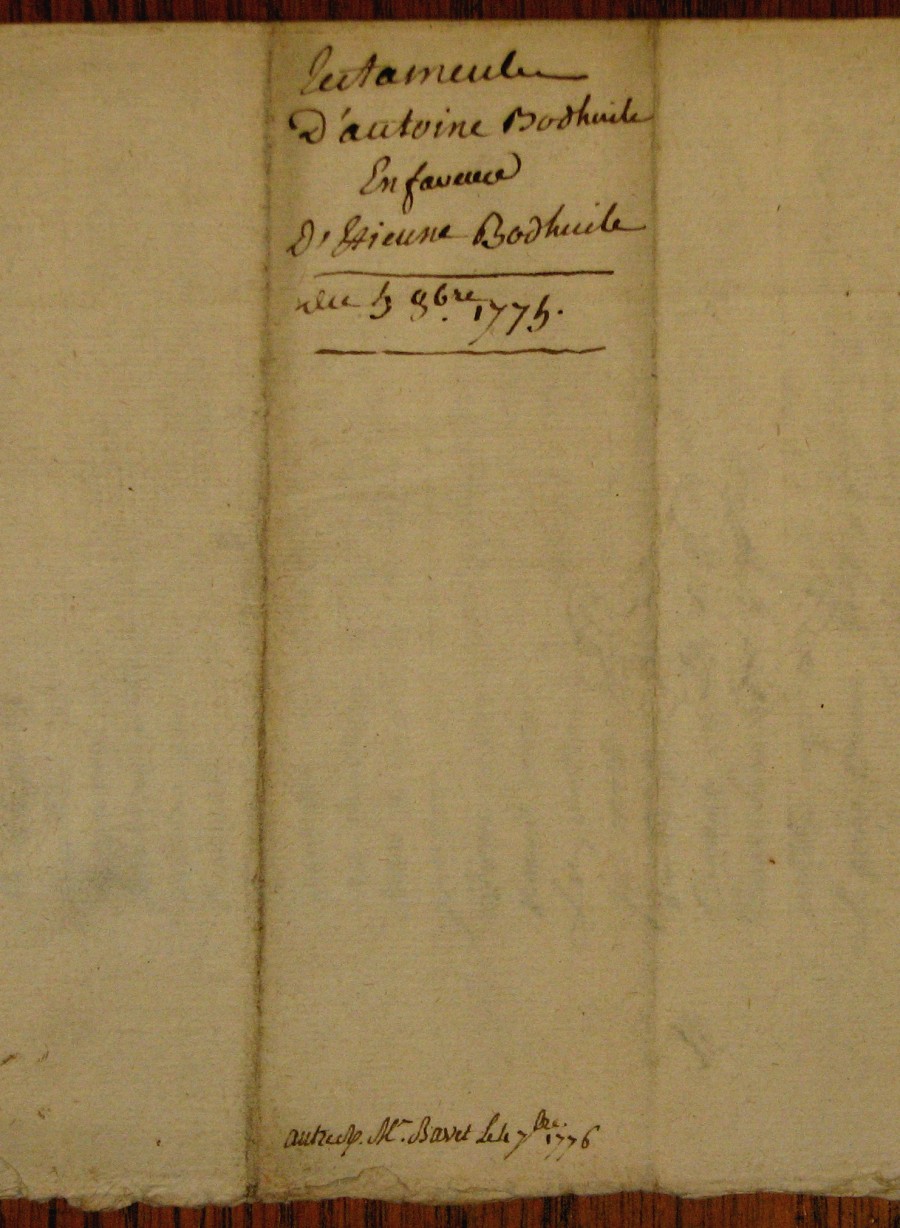 Testament
D'antoine Bodhuile
En faveure
D'Etienne Bodhuile
Du 5 8bre 1775.
autre p. Mr. Bavet Le 7bre. 1776